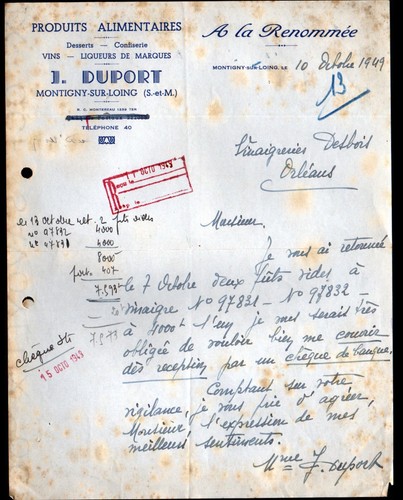 PRODUITS ALIMENTAIRES
Desserts — Confiserie
VINS — LIQUEURS DE MARQUES
J. DUPORT
MONTIGNY-SUR-LOING (S.-et-M.)
R. C. MONTEREAU
TÉLÉPHONE 40
A la Renommée
MONTIGNY-SUR-LOING, LE 10 Octobre 1949
13
Vinaigreries Desbois
Orléans
1 OCTO 1949
le 13 Octobre ret. 2 fûts vides
No 97832 4000
4000
8000
port. 407
7.593
Monsieur,
Je vous ai retourné
le 7 Octobre deux fûts vides à
vinaigre No 97831 — No 97832 —
à 4000f l'un, je vous serais très
obligée de vouloir bien me couvrir
dès réception par un chèque de banque.
Comptant sur votre
vigilance, je vous prie d'agréer,
Monsieur l'expression de mes
meilleurs sentiments.
Mme J. Duport
chèque
15 OCTO 1949